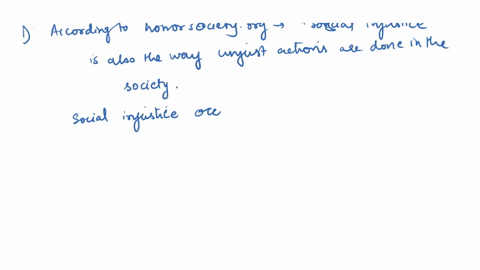 1) According to honorsociety.org → social injustice
is also the way unjust actions are done in the
society.
Social injustice occ